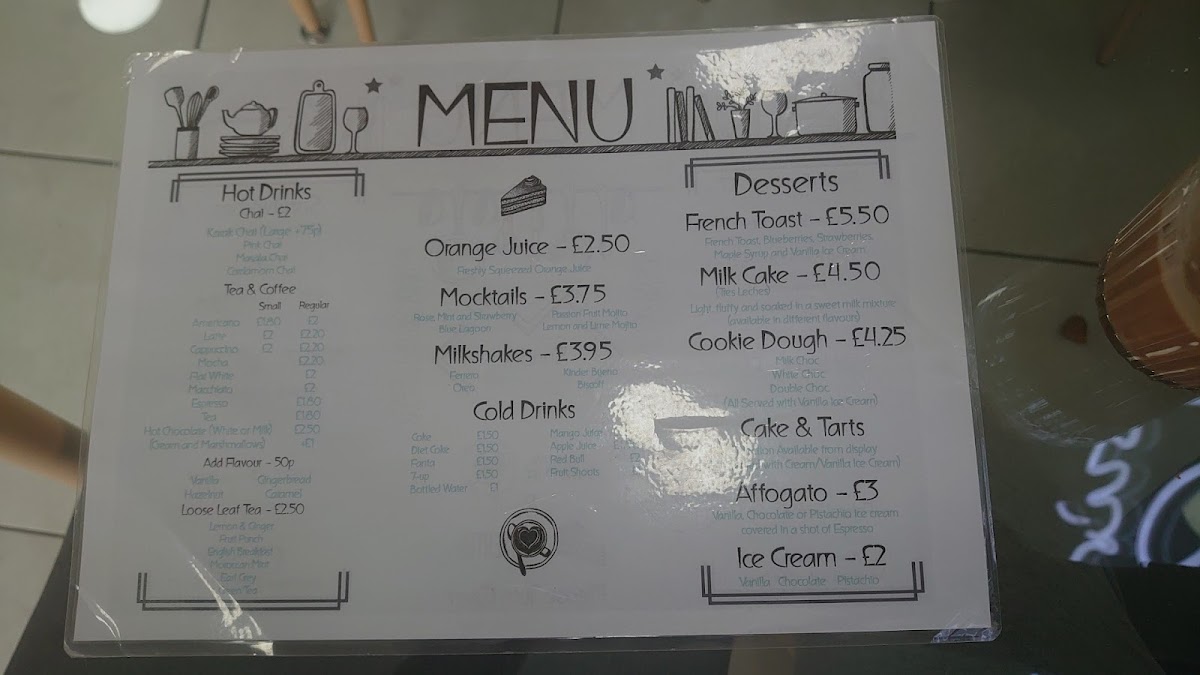 MENU
Hot Drinks
Chai - £2
Karak Chai (Large +75p)
Pink Chai
Masala Chai
Cardamom Chai
Tea & Coffee
Small Regular
Americano £1.80 £2
Latte £2 £2.20
Cappuccino £2 £2.20
Mocha £2.20
Flat White £2
Macchiato £2
Espresso £1.80
Tea £1.80
Hot Chocolate (White or Milk) £2.50
(Cream and Marshmallows) +£1
Add Flavour - 50p
Vanilla Gingerbread
Hazelnut Caramel
Loose Leaf Tea - £2.50
Lemon & Ginger
Fruit Punch
English Breakfast
Moroccan Mint
Earl Grey
Tea
Orange Juice - £2.50
Freshly Squeezed Orange Juice
Mocktails - £3.75
Rose, Mint and Strawberry Passion Fruit Mojito
Blue Lagoon Lemon and Lime Mojito
Milkshakes - £3.95
Ferrero Kinder Bueno
Oreo Biscoff
Cold Drinks
Coke £1.50 Mango Juice
Diet Coke £1.50 Apple Juice
Fanta £1.50 Red Bull
7-up £1.50 Fruit Shoots
Bottled Water £1
Desserts
French Toast - £5.50
French Toast, Blueberries, Strawberries,
Maple Syrup and Vanilla Ice Cream
Milk Cake - £4.50
(Tres Leches)
Light, fluffy and soaked in a sweet milk mixture
(available in different flavours)
Cookie Dough - £4.25
Milk Choc
White Choc
Double Choc
(All Served with Vanilla Ice Cream)
Cake & Tarts
Available from display
with Cream/Vanilla Ice Cream)
Affogato - £3
Vanilla, Chocolate or Pistachio Ice cream
covered in a shot of Espresso
Ice Cream - £2
Vanilla Chocolate Pistachio